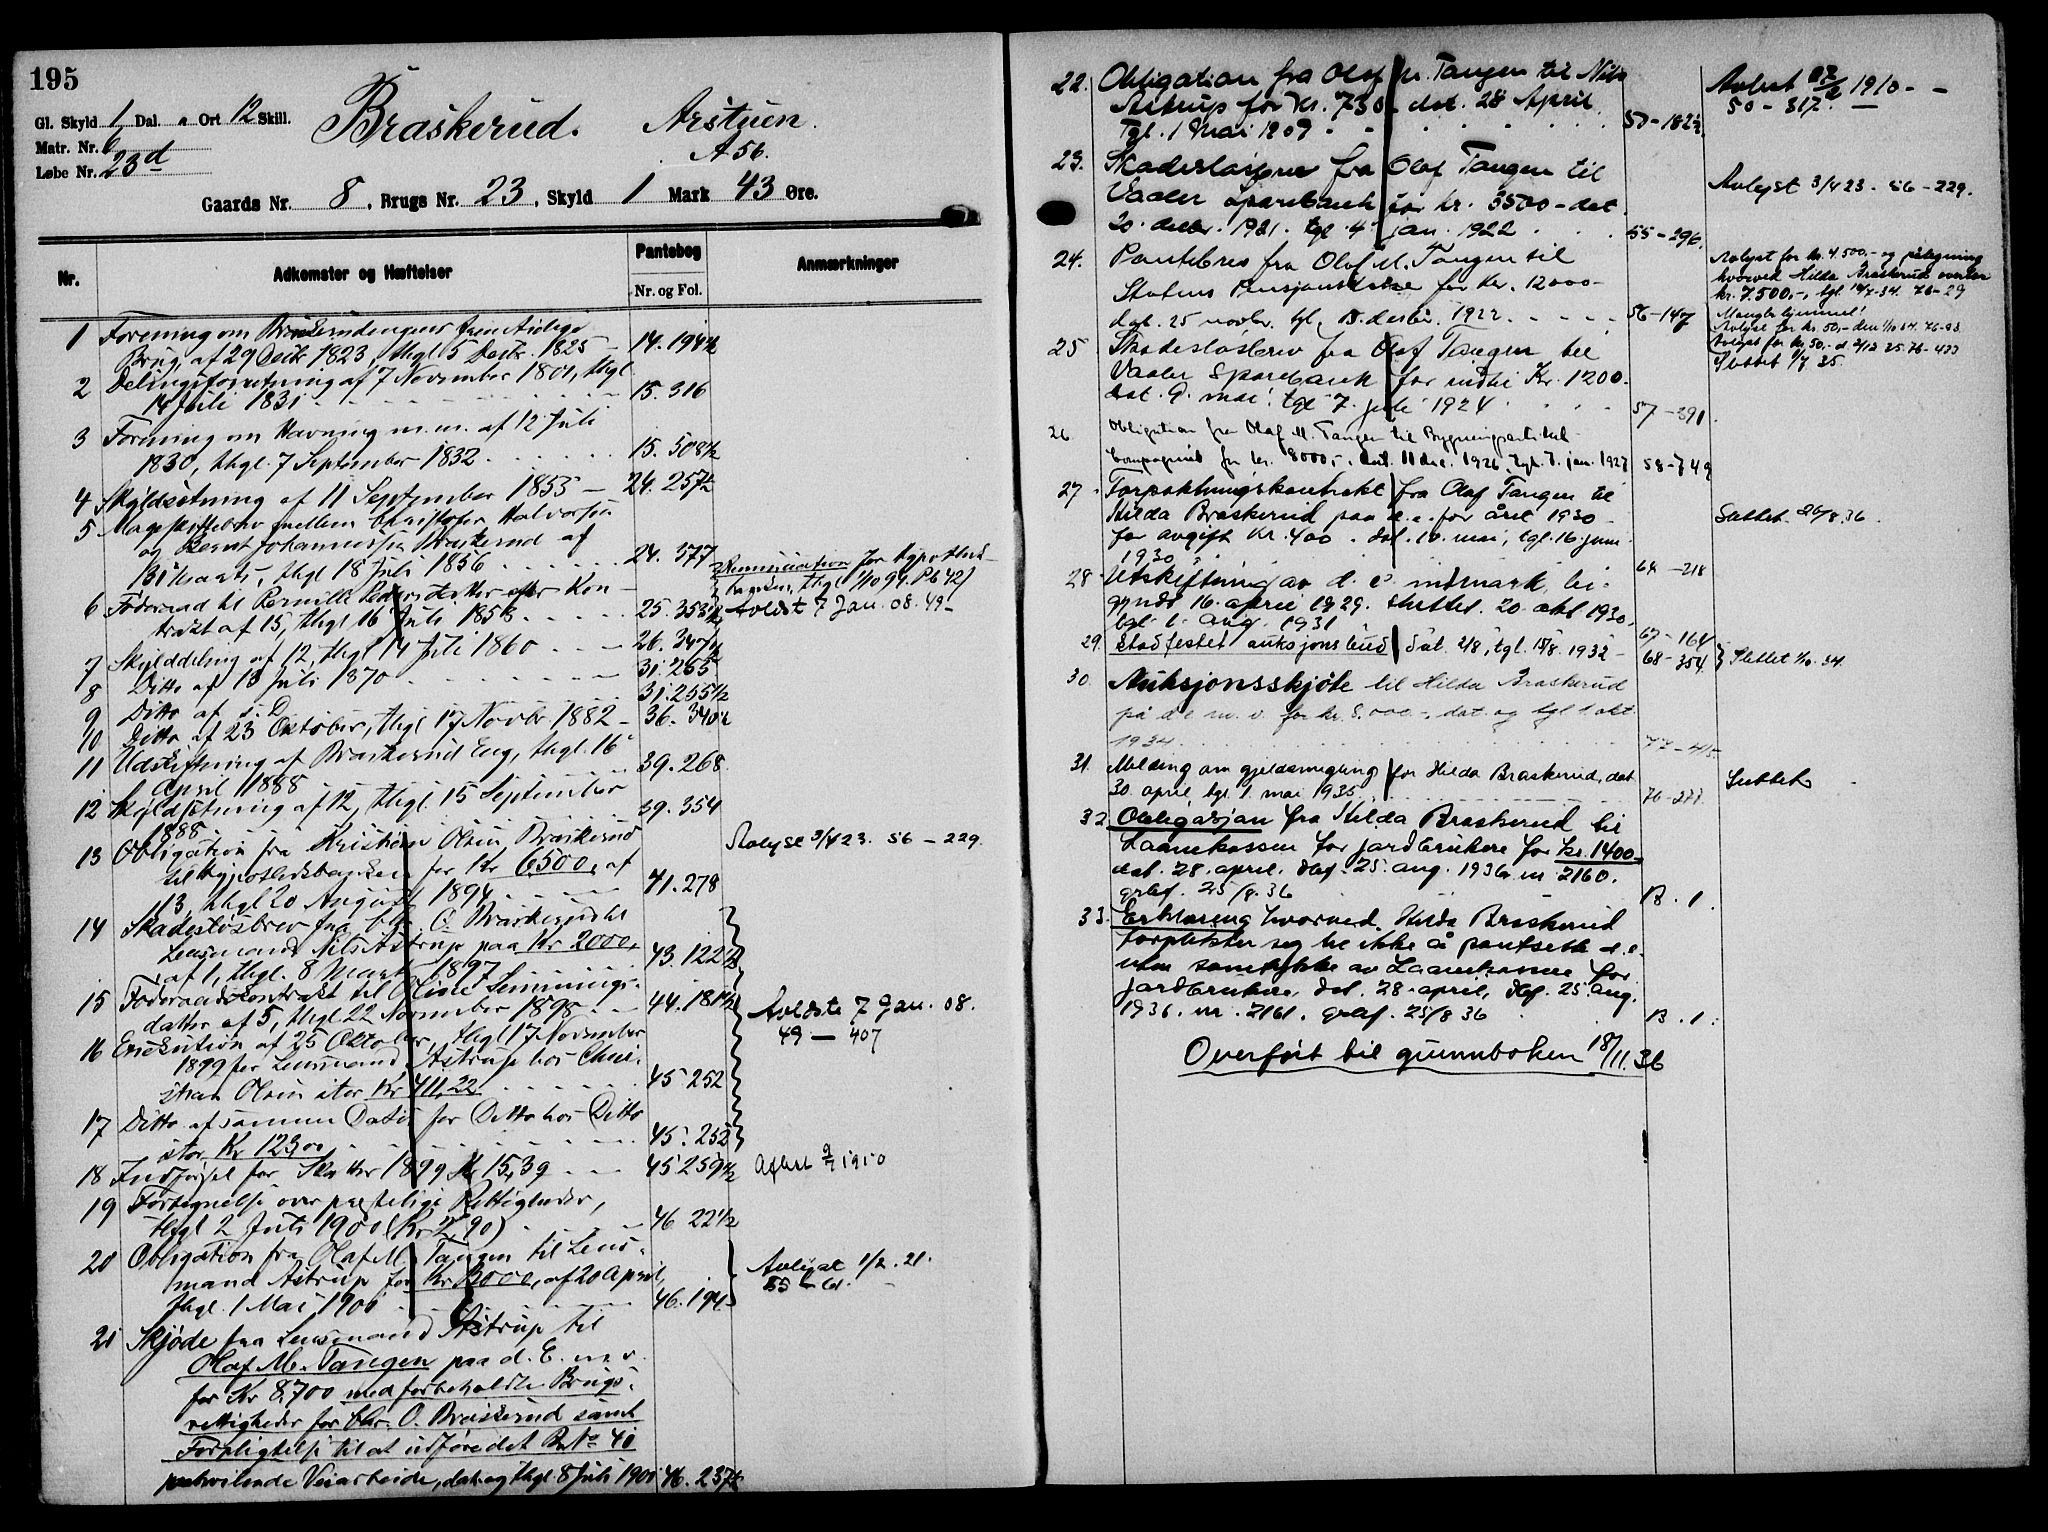 195
Gl. Skyld 1 Dal. " Ort 12 Skill.
Matr. Nr. 6
Løbe Nr. 23d
Braskerud. Arstuen.
A 56.
Gaards Nr. 8, Brugs Nr. 23, Skyld 1 Mark 43 Øre.
Nr.
Adkomster og Hæftelser
Pantebog
Nr. og Fol.
Anmærkninger
1 Forening om Braskerudengens
Brug, af 29 1823, thgl. 5 1825 14. 194½
2 Delingsforretning af 7 November 1801, thgl.
14 Juli 1831 15. 316
3 Forening om Havning m.m. af 12 Juli
1830, thgl. 7 September 1832 15. 508½
4 Skyldsetning af 11 September 1855 24. 257½
5 Mageskiftebrev mellem Christofer Halvorsen
og Bernt Johannessen Braskerud af
thgl. 18 Juli 1856 24. 577
6 Föderaad til Pernille Pedersdatter efter Kon-
trakt af 15, thgl. 16 Juli 1858 25. 353½
Avlöst 7 Jan. 08. 49-
7 Skylddeling af 12, thgl. 14 Juli 1860 26. 347½
8 Ditto af 13 Juli 1870 31. 255
9 Ditto af s. D. 31. 255½
10 Ditto af 23 Oktober, thgl. 17 Novbr. 1882 36. 340½
11 Udskiftning af Braskerud Eng, thgl. 16
April 1888 39. 268
12 Skyldsetning af 12, thgl. 15 September
1888 39. 354
13 Obligation fra Kristian Olsen Braskerud
til Hypothekbanken for Kr. 6500, af
13, thgl. 20 August 1894 41. 278
Avlyst 3/4 23. 56 - 229.
14 Skadeslösbrev fra Chr. O. Braskerud til
Lensmand Nils Astrup paa Kr. 2000,
af 1, thgl. 8 Marts 1897 43. 122½
15 Föderaadskontrakt til Oline Lemmings-
datter af 5, thgl. 22 November 1898 44. 181½
Avlöste 7 Jan. 08.
49 — 407
16 Exekution af 25 Oktober, thgl. 17 November
1899 for Lensmand Astrup hos Chri-
stian Olsen stor Kr. 411,22 45 252
17 Ditto af samme Datis for Ditto hos Ditto
stor Kr. 123,00 45. 252
18 Indførsel for Skatter 1899 Kr. 15,39 45 259½
1910
19 Fortegnelse over Rettigheder,
thgl. 2 Juli 1900 46 22½
20 Obligation fra Olaf M. Tangen til Lens-
mand Astrup for Kr. af 20 April,
thgl. 1 Mai 1900 46. 194
Avlyst 1/2. 21.
55 - 61.
21 Skjøde fra Lensmand Astrup til
Olaf M. Tangen paa d. E. m. v.
for Kr. 8,700 med forbeholdte Brugs-
rettigheder for Chr. O. Braskerud samt
Forpligtelse til at udføre det B. No 40
paahvilende Veiarbeide, dat. og thgl. 8 Juli 1901 46. 237½
22. Obligation fra Olaf M. Tangen til Nils
Astrup for Kr. 730 dat. 28 April
Tgl. 1 Mai 1909 50-182½
Avlest 1910 - -
50 - 317.
23. Skadeslösbrev fra Olaf Tangen til
Vaaler Sparebank for kr. 3500 - dat.
20. decbr. 1921. tgl. 4 jan. 1922 55-296.
Avlyst 3/4 23. 56 - 229.
24. Pantebrev fra Olaf M. Tangen til
Statens Pensjonskasse for kr. 12000-
dat. 25 novbr. tgl. 15. decbr. 1922 56-147
Avlyst for kr. 4.500.- og påtegning
hvorved Hilda Braskerud overtar
kr. 7.500.-, tgl. 14/7-34. 76-29
Mangler hjemmel!
Avlyst for kr. 50,- den 1/10 34. 76-93
Avlyst for kr. 50,- d. 2/12 35. 76-433
25 Skadeslösbrev fra Olaf Tangen til
Vaaler Sparebank for indtil Kr. 1200.
dat. 9. mai. tgl. 7. juli 1924 57-391.
26 Obligation fra Olaf M. Tangen til Bygningsartikel-
Compagniet for kr. 8000,-, dat. 11 des. 1926, tgl. 7. jan. 1927 58-749
27 Forpaktningskontrakt fra Olaf Tangen til
Hilda Braskerud paa d. e. for året 1930
for avgift Kr. 400. dat. 10. mai, tgl. 16 juni
1930 64-218
Slettet 26/8.36.
28 Utskiftning av d. e. indmark, be-
gyndt 16. april 1929. sluttet. 20. okt 1930,
tgl. 6. aug. 1931 67-164
29. Stadfestet auksjonsbud dat. 2/8, tgl. 15/8. 1932 68-354
Slettet 1/10. 34.
30. Auksjonsskjöte til Hilda Braskerud
på d. e. m. v. for kr. 8.000.-, dat. og tgl. 1 okt.
1934 77-415.
31. Melding om gjeldsmegling for Hilda Braskerud, dat.
30. april, tgl. 1. mai 1935 76-277
Slettet
32. Obligasjon fra Hilda Braskerud til
Laanekassen for jordbrukere for kr. 1400.-
dat. 28. april. dbf. 25. aug. 1936. nr. 2160.
grbf. 25/8. 36 B. 1.
33. Erklæring hvorved Hilda Braskerud
forplikter seg til ikke å pantsette d. e.
uten samtykke av Laanekassen for
jordbrukere, dat. 28. april, dbf. 25. aug.
1936. nr. 2161. grbf. 25/8 36 B. 1.
Overfört til grunnboken 18/11. 36